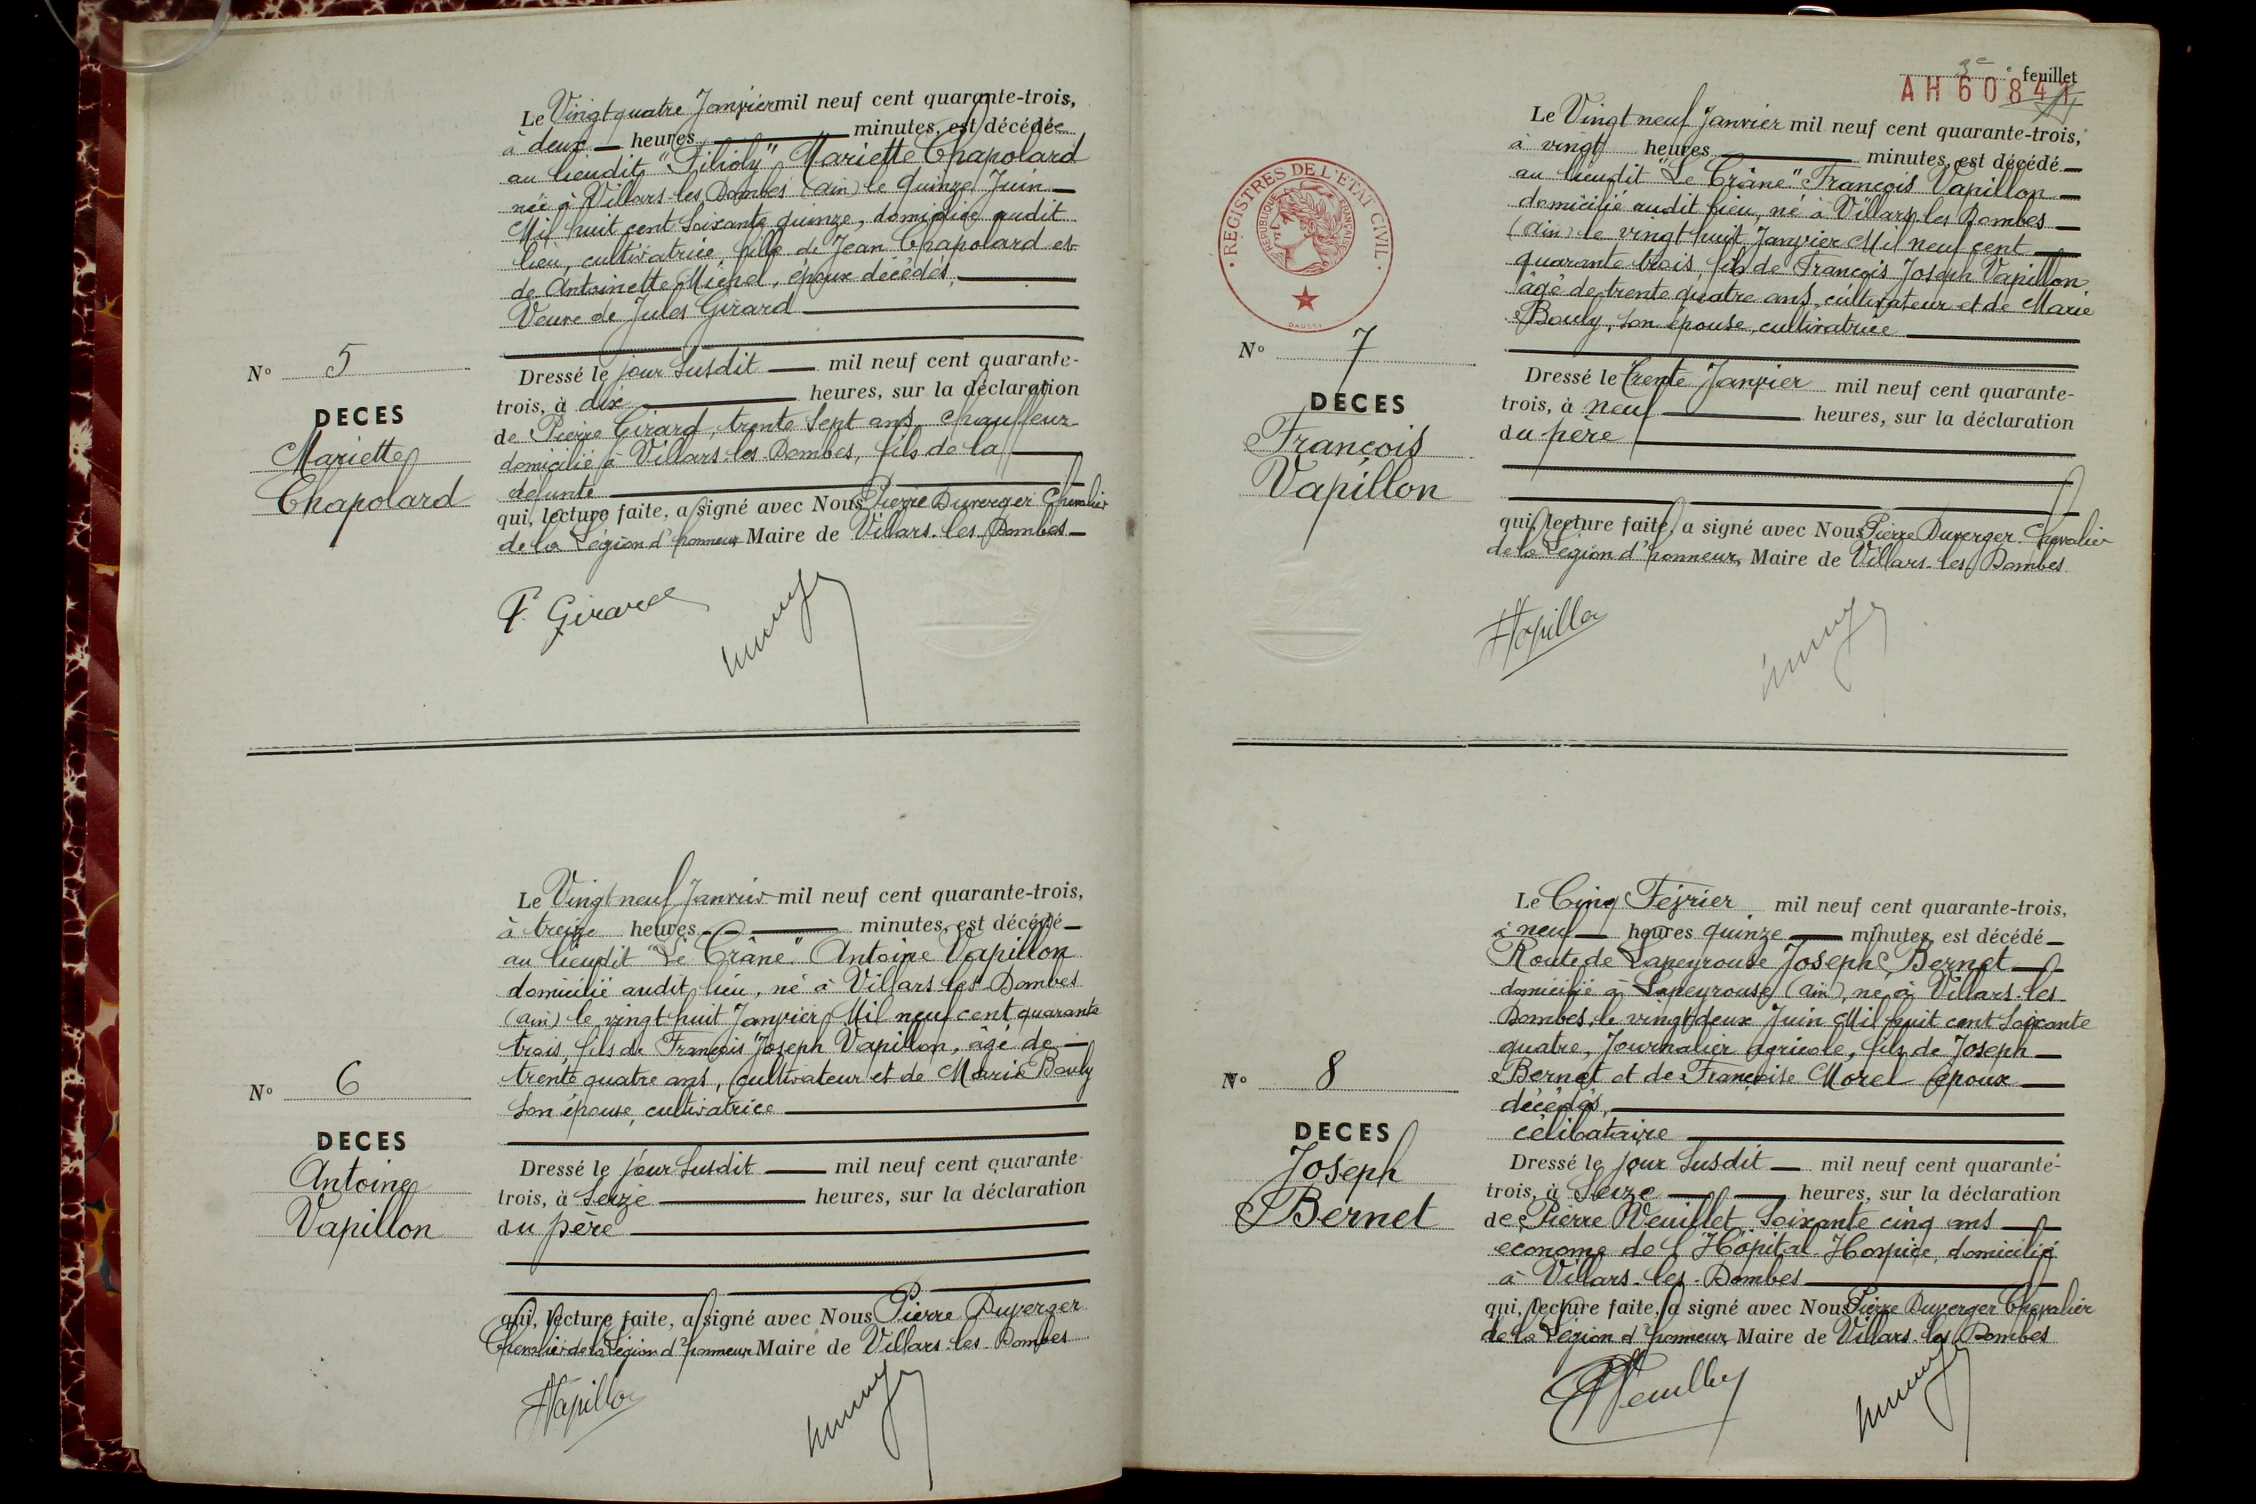 Le Vingt quatre Janvier mil neuf cent quarante-trois,
à deux heures minutes, est décédée
au lieudit "Filioly" Mariette Chapolard
née à Villars-les-Dombes (ain) le quinze Juin
Mil huit cent soixante quinze, domiciliée audit
lieu, cultivatrice, fille de Jean Chapolard et
de Antoinette Michel, époux décédés,
Veuve de Jules Girard
N° 5
DECES
Mariette
Chapolard
Dressé le jour susdit mil neuf cent quarante-
trois, à dix heures, sur la déclaration
de Pierre Girard, trente sept ans, chauffeur
domicilié à Villars-les-Dombes, fils de la
défunte
qui, lecture faite, a signé avec Nous Pierre Duverger Chevalier
de la Légion d'honneur, Maire de Villars-les-Dombes
P. Girard
Le Vingt neuf Janvier mil neuf cent quarante-trois,
à treize heures minutes, est décédé
au lieudit "Le Crâne" Antoine Vapillon
domicilié audit lieu, né à Villars-les-Dombes
(ain) le vingt huit Janvier Mil neuf cent quarante
trois, fils de François Joseph Vapillon, âgé de
trente quatre ans, cultivateur et de Marie Bouly
son épouse, cultivatrice
N° 6
DECES
Antoine
Vapillon
Dressé le jour susdit mil neuf cent quarante-
trois, à seize heures, sur la déclaration
du père
qui, lecture faite, a signé avec Nous Pierre Duverger
Chevalier de la Légion d'honneur Maire de Villars-les-Dombes
Vapillon
3e feuillet
AH 60841
REGISTRES DE L'ETAT CIVIL
REPUBLIQUE FRANÇAISE
Le Vingt neuf Janvier mil neuf cent quarante-trois,
à vingt heures minutes, est décédé
au lieudit "Le Crâne" François Vapillon
domicilié audit lieu, né à Villars-les-Dombes
(ain) le vingt huit Janvier Mil neuf cent
quarante trois, fils de François Joseph Vapillon
âgé de trente quatre ans, cultivateur et de Marie
Bouly, son épouse, cultivatrice
N° 7
DECES
François
Vapillon
Dressé le trente Janvier mil neuf cent quarante-
trois, à neuf heures, sur la déclaration
du père
qui, lecture faite, a signé avec Nous Pierre Duverger Chevalier
de la Légion d'honneur, Maire de Villars-les-Dombes
Vapillon
Le Cinq Février mil neuf cent quarante-trois,
à neuf heures quinze minutes, est décédé
Route de Lapeyrouse Joseph Bernet
domicilié à Lapeyrouse (ain), né à Villars-les
Dombes, le vingt deux Juin Mil huit cent soixante
quatre, Journalier agricole, fils de Joseph
Bernet et de Françoise Morel époux
décédés,
célibataire
N° 8
DECES
Joseph
Bernet
Dressé le jour susdit mil neuf cent quarante-
trois, à seize heures, sur la déclaration
de Pierre Veuillet, soixante cinq ans
econome de l'Hôpital-Hospice, domicilié
à Villars-les-Dombes
qui, lecture faite, a signé avec Nous Pierre Duverger Chevalier
de la Légion d'honneur, Maire de Villars-les-Dombes